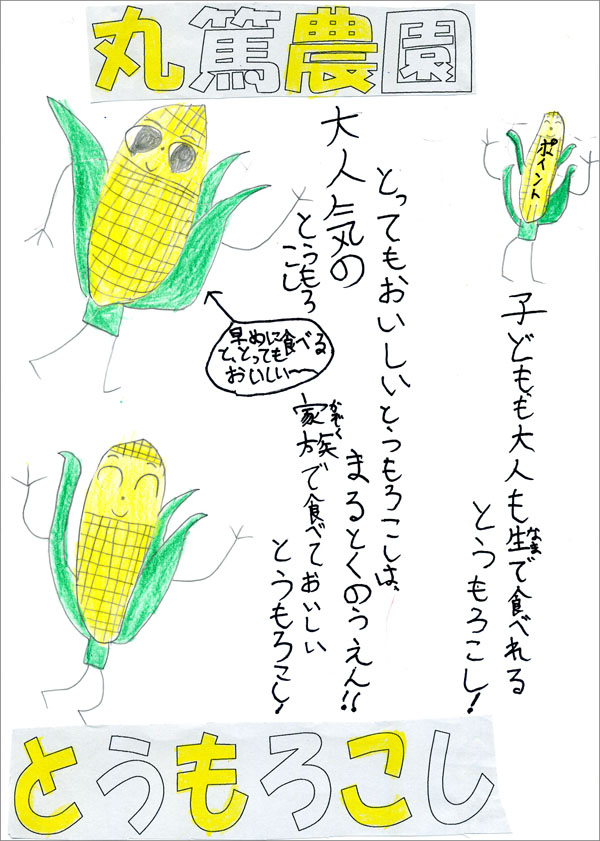 丸篤農園
ポイント
子どもも大人も生で食べれる
なま
とうもろこし!
とってもおいしいとうもろこしは、
まるとくのうえん!!
大人気の
とうもろ
こし
家族で食べておいしい
かぞく
とうもろこし!
早めに食べる
と、とっても
おいしい〜
とうもろこし